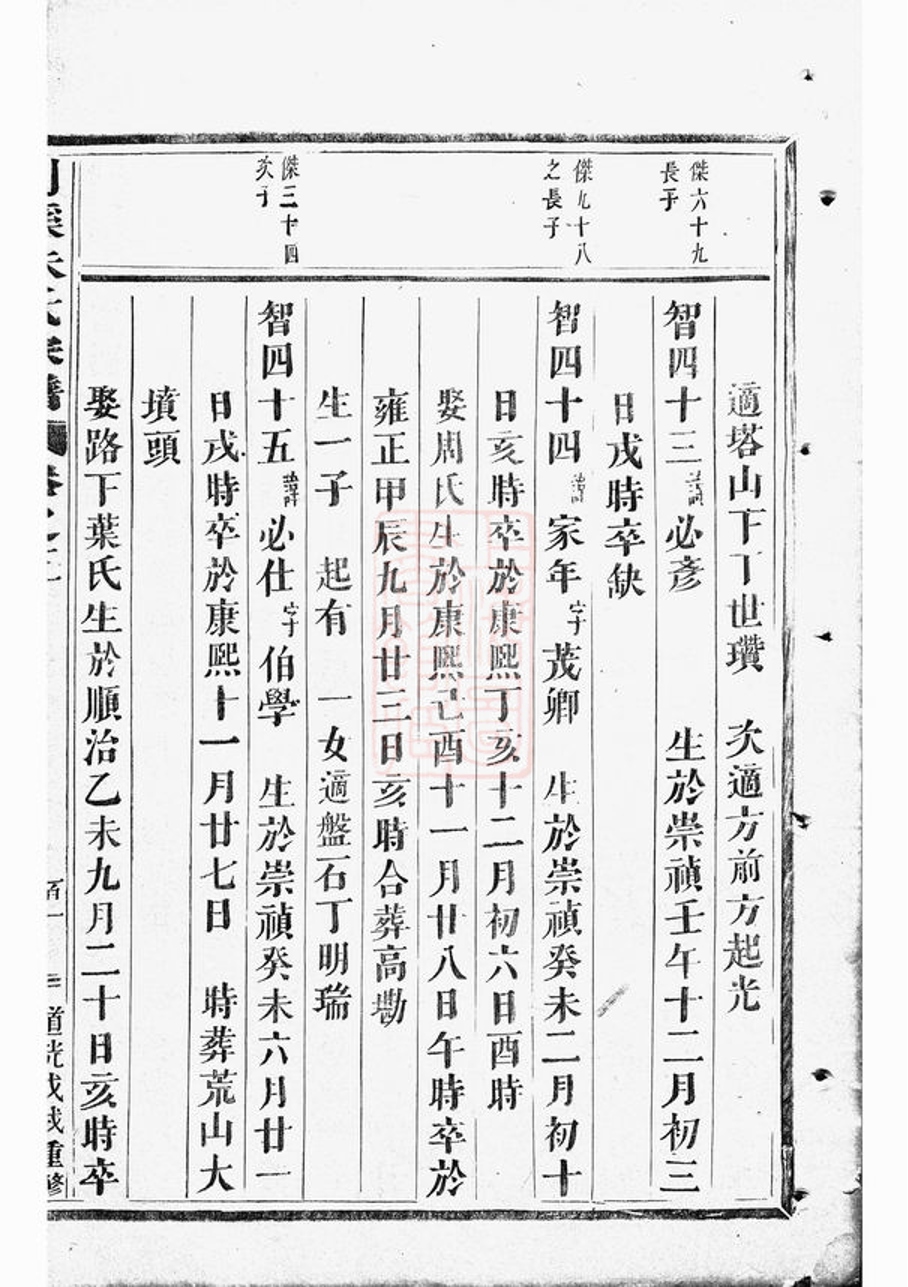 傑六十九
長子
傑九十八
之長子
傑三十四
次子
適塔山下丁世瓚 次適方前方起光
智四十三諱必彥 生於崇禎壬午十二月初三
日戌時卒缺
智四十四諱家年字茂卿 生於崇禎癸未二月初十
日亥時卒於康熙丁亥十二月初六日酉時
娶周氏生於康熙己酉十一月廿八日午時卒於
雍正甲辰九月廿三日亥時合葬高墈
生一子 起有 一女適盤石丁明瑞
智四十五諱必仕字伯學 生於崇禎癸未六月廿一
日戌時卒於康熙十一月廿七日 時葬荒山大
墳頭
娶路下葉氏生於順治乙未九月二十日亥時卒
朱氏宗譜 卷之
道光戊戌重修